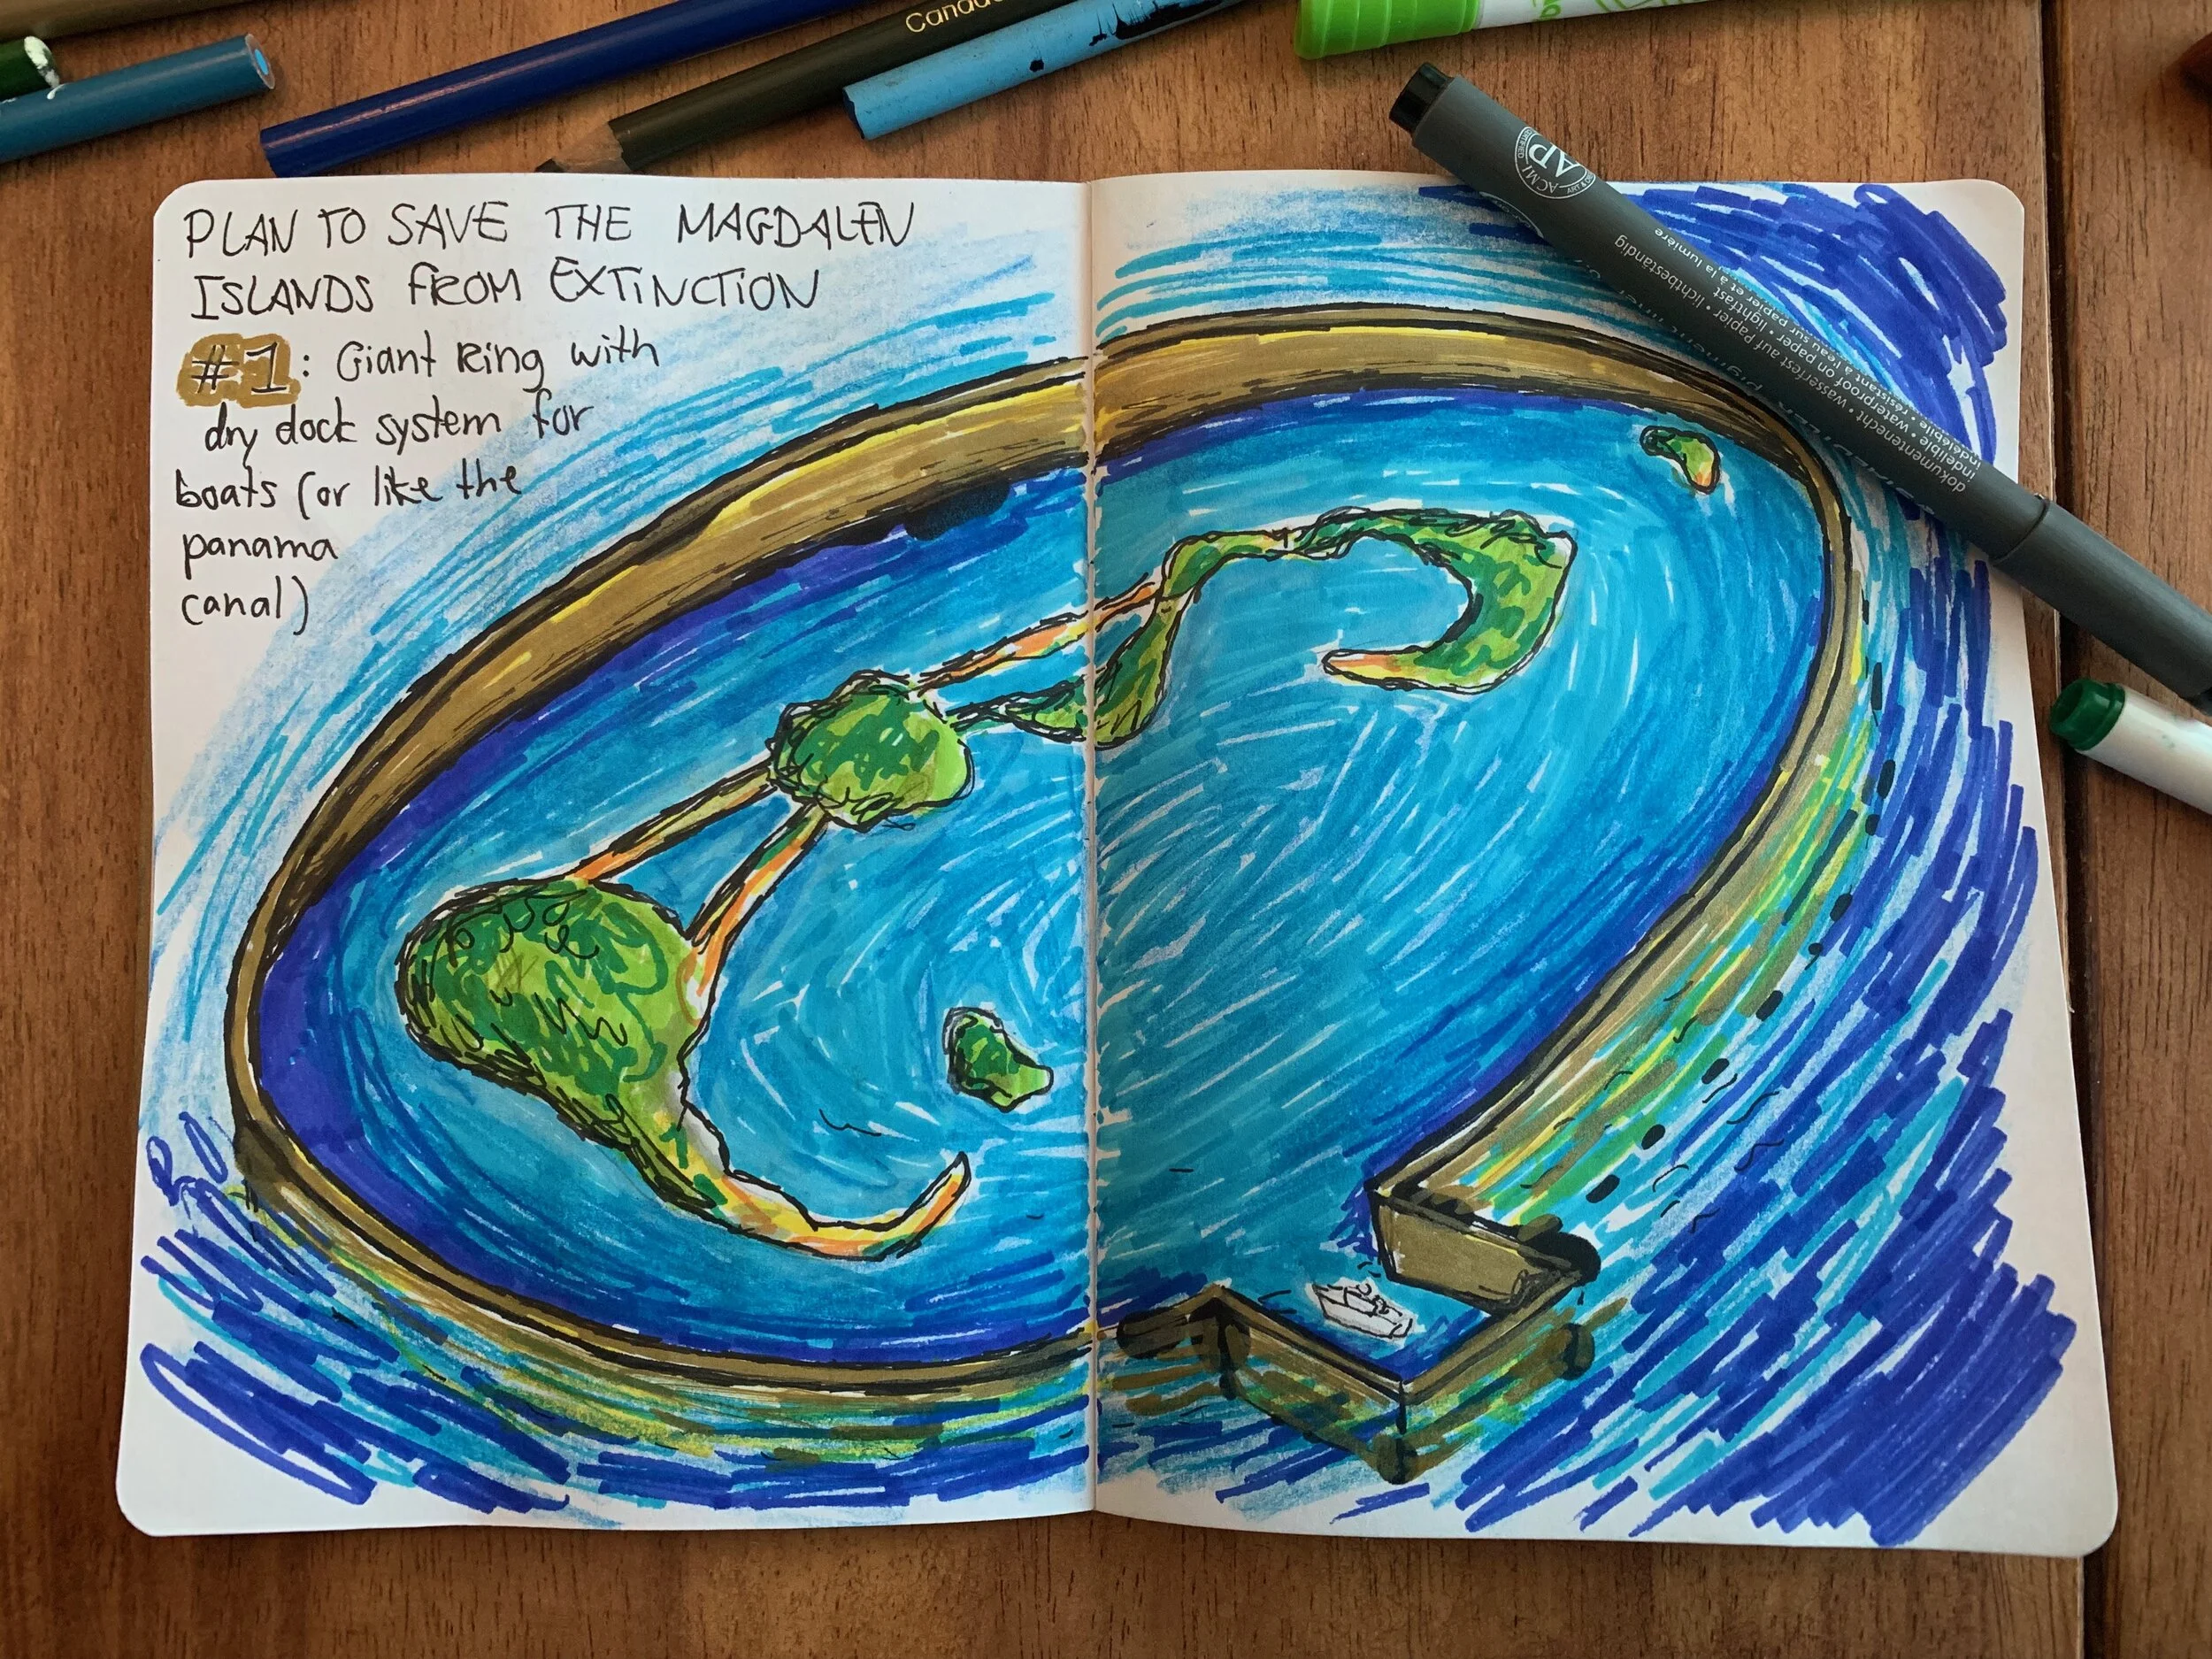 PLAN TO SAVE THE MAGDALEN
ISLANDS FROM EXTINCTION
#1: Giant Ring with
dry dock system for
boats (or like the
panama
canal)
Canada
AP
ACMI
CERTIFIED
dokumentenecht • wasserfest auf Papier • lichtbeständig
waterproof on paper • lightfast
indélébile • résistant à l'eau sur papier et à la lumière